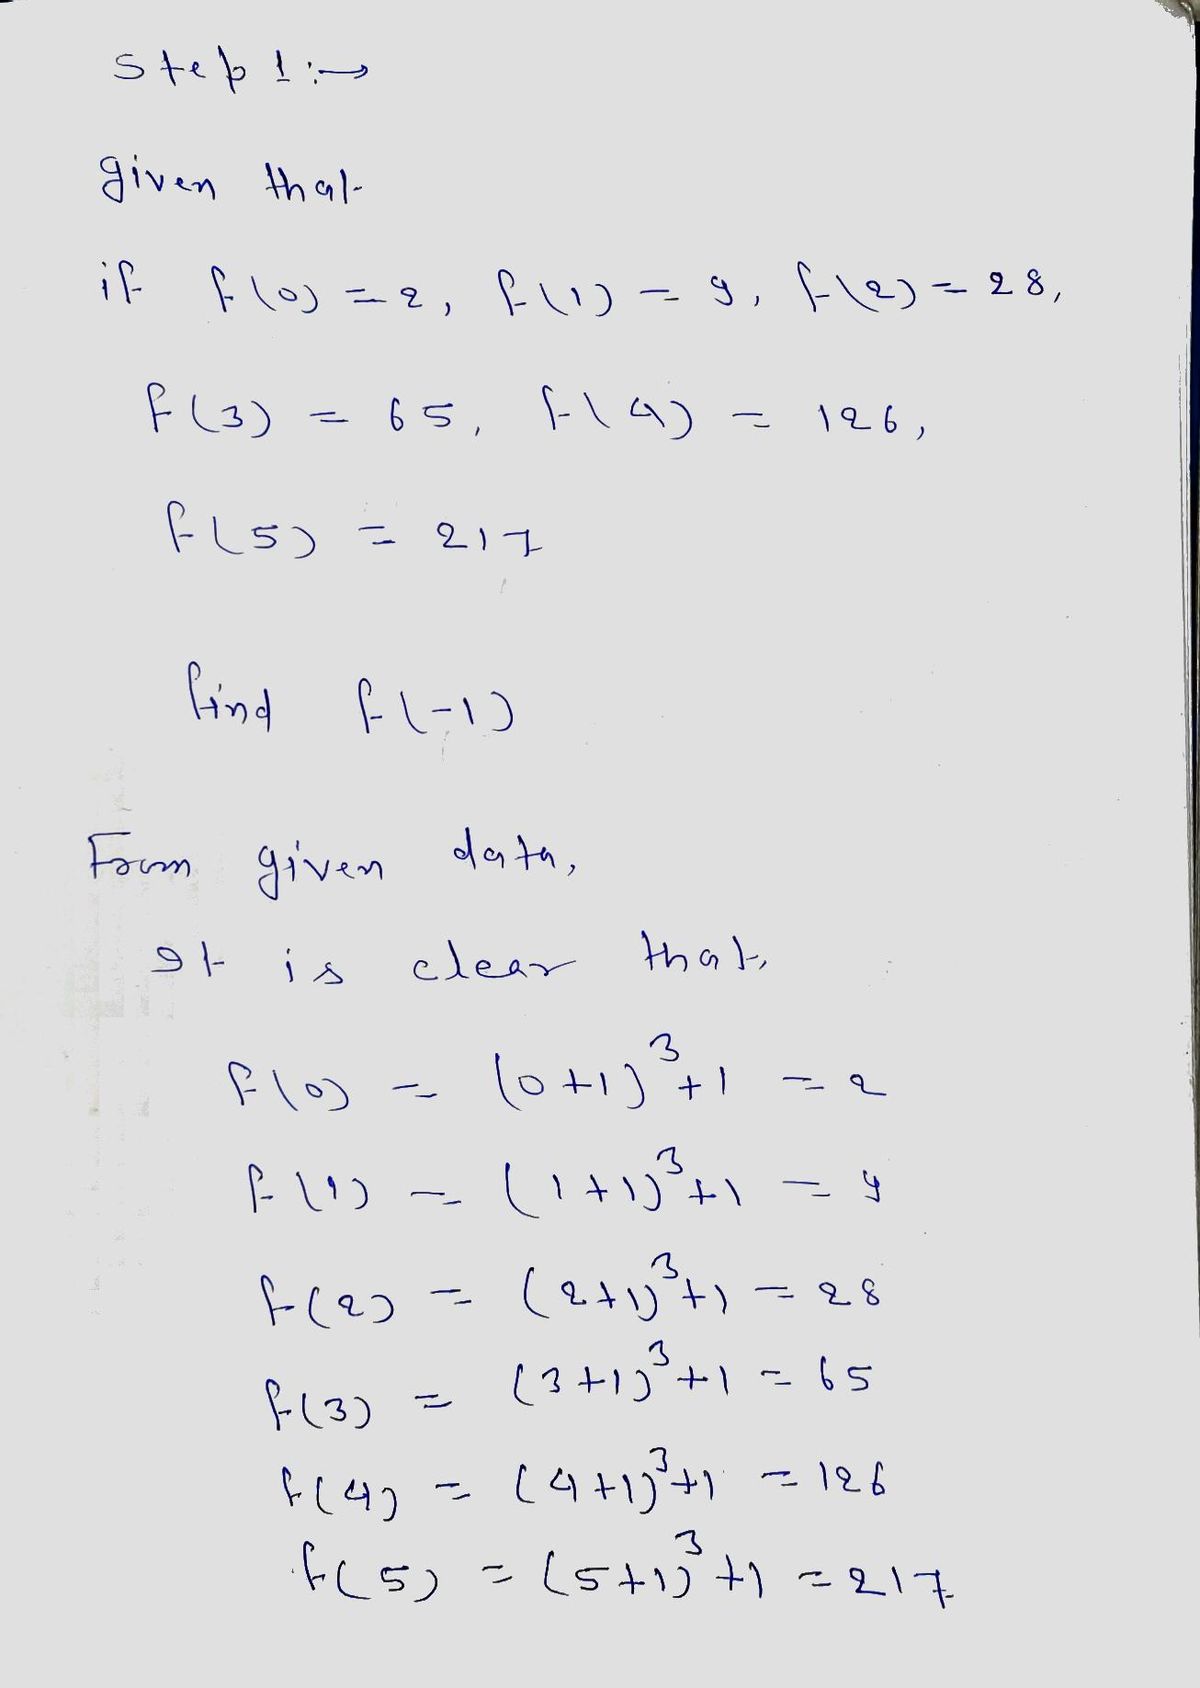 Step 1:→
given that
if f(0) = 2, f(1) = 9, f(2) = 28,
f(3) = 65, f(4) = 126,
f(5) = 217
find f(-1)
From given data,
It is clear that,
f(0) = (0+1)³+1 = 2
f(1) = (1+1)³+1 = 9
f(2) = (2+1)³+1 = 28
f(3) = (3+1)³+1 = 65
f(4) = (4+1)³+1 = 126
f(5) = (5+1)³+1 = 217